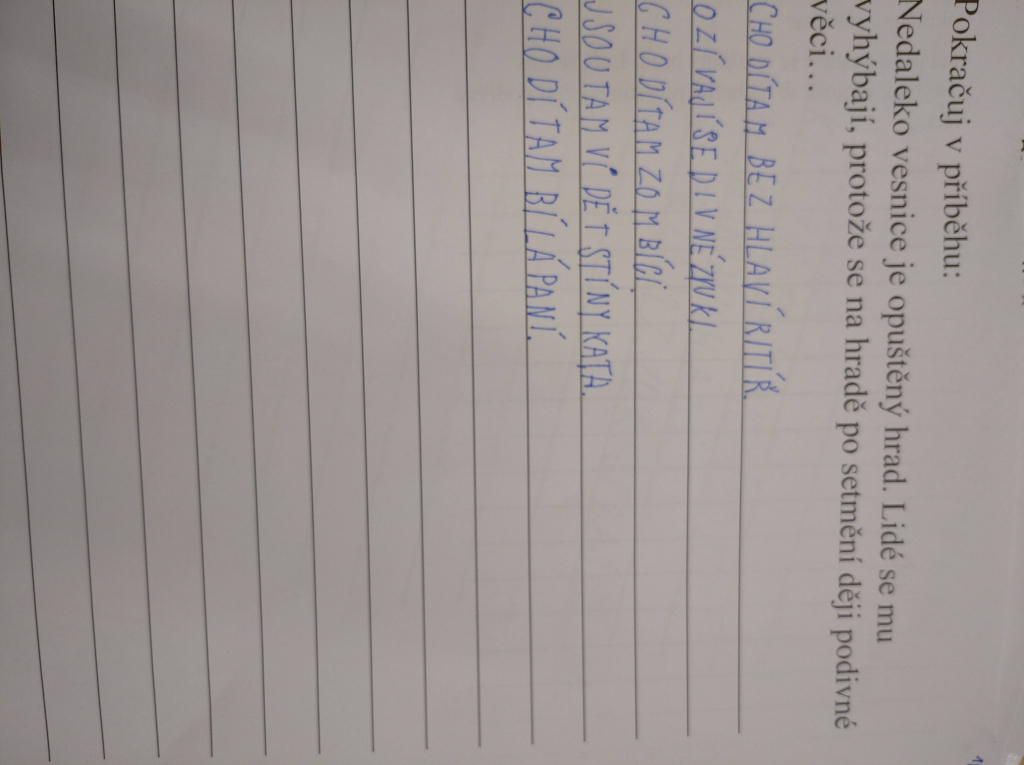 Pokračuj v příběhu:
Nedaleko vesnice je opuštěný hrad. Lidé se mu
vyhýbají, protože se na hradě po setmění ději podivné
věci...
CHODÍTAM BEZ HLAVÍ RITÍŘ.
OZÍVAJÍSEDIVNÉ ZVUKI.
CHODÍTAM ZOMBÍCI.
JSOUTAM VÍDĚT STÍNY KATA.
CHODÍTAM BÍLÁ PANÍ.